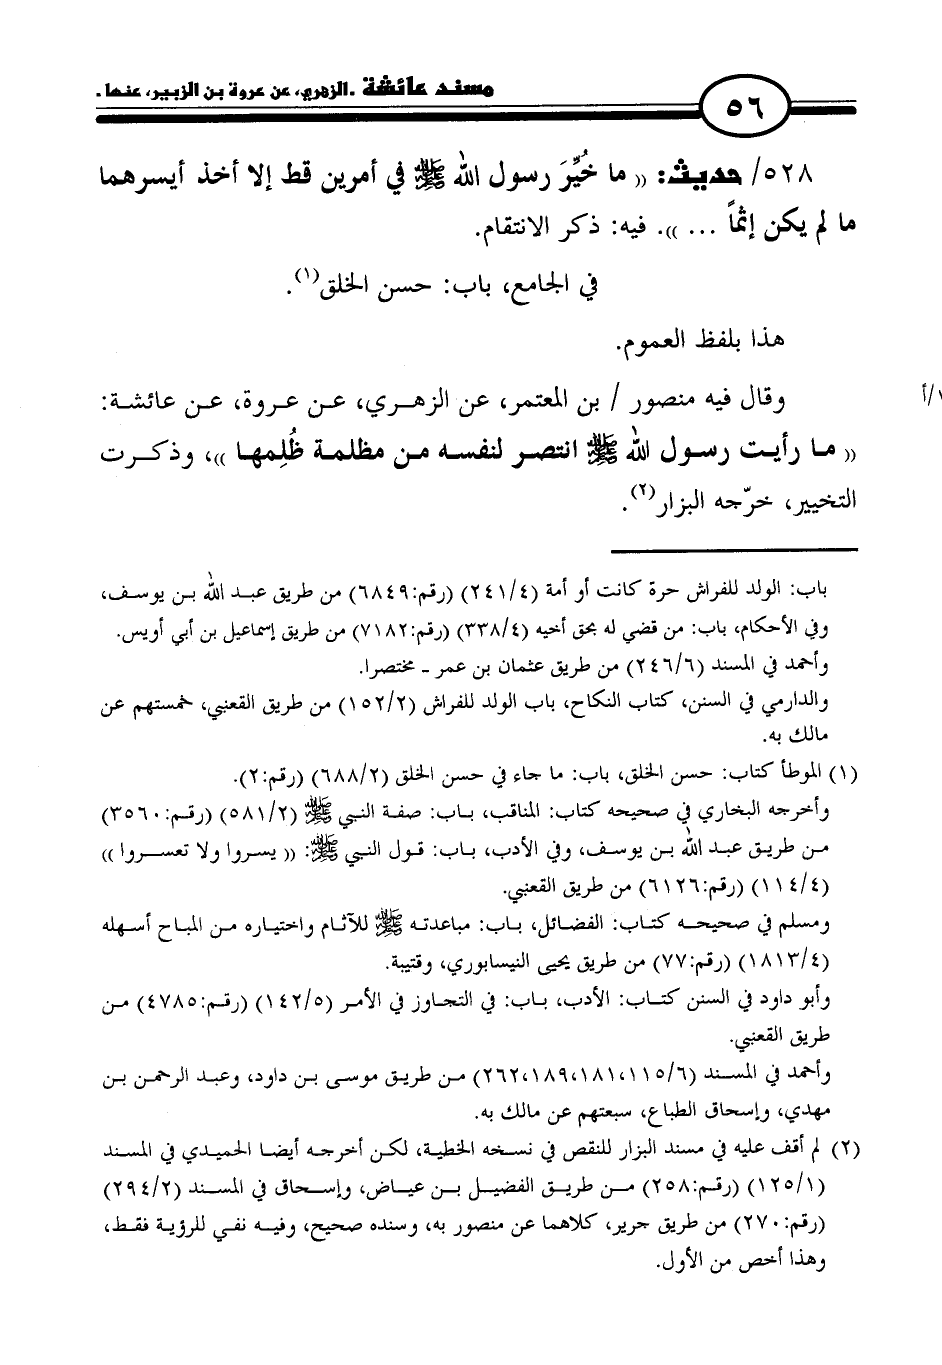 ٥٦
مسند عائشة ـ الزهري، عن عروة بن الزبير، عنها ـ
٥٢٨/ حديث: (( ما خُيِّرَ رسول الله ﷺ في أمرين قط إلا أخذ أيسرهما
ما لم يكن إثماً ... )). فيه: ذكر الانتقام.
في الجامع، باب: حسن الخلق(١).
هذا بلفظ العموم.
وقال فيه منصور / بن المعتمر، عن الزهري، عن عروة، عن عائشة:
(( ما رأيت رسول الله ﷺ انتصر لنفسه من مظلمة ظُلِمها ))، وذكرت
التخيير، خرّجه البزار(٢).
باب: الولد للفراش حرة كانت أو أمة (٢٤١/٤) (رقم:٦٨٤٩) من طريق عبد الله بن يوسف،
وفي الأحكام، باب: من قضي له بحق أخيه (٣٣٨/٤) (رقم:٧١٨٢) من طريق إسماعيل بن أبي أويس.
وأحمد في المسند (٢٤٦/٦) من طريق عثمان بن عمر ـ مختصرا.
والدارمي في السنن، كتاب النكاح، باب الولد للفراش (١٥٢/٢) من طريق القعنبي، خمستهم عن
مالك به.
(١) الموطأ كتاب: حسن الخلق، باب: ما جاء في حسن الخلق (٦٨٨/٢) (رقم:٢).
وأخرجه البخاري في صحيحه كتاب: المناقب، باب: صفة النبي ﷺ (٥٨١/٢) (رقم:٣٥٦٠)
من طريق عبد الله بن يوسف، وفي الأدب، باب: قول النبي ﷺ: (( يسروا ولا تعسروا ))
(١١٤/٤) (رقم:٦١٢٦) من طريق القعنبي.
ومسلم في صحيحه كتاب: الفضائل، باب: مباعدته ﷺ للآثام واختياره من المباح أسهله
(١٨١٣/٤) (رقم:٧٧) من طريق يحيى النيسابوري، وقتيبة.
وأبو داود في السنن كتاب: الأدب، باب: في التجاوز في الأمر (١٤٢/٥) (رقم:٤٧٨٥) من
طريق القعنبي.
وأحمد في المسند (١١٥/٦،١٨١،١٨٩،٢٦٢) من طريق موسى بن داود، وعبد الرحمن بن
مهدي، وإسحاق الطباع، سبعتهم عن مالك به.
(٢) لم أقف عليه في مسند البزار للنقص في نسخه الخطية، لكن أخرجه أيضا الحميدي في المسند
(١٢٥/١) (رقم:٢٥٨) من طريق الفضيل بن عياض، وإسحاق في المسند (٢٩٤/٢)
(رقم:٢٧٠) من طريق جرير، كلاهما عن منصور به، وسنده صحيح، وفيه نفي للرؤية فقط،
وهذا أخص من الأول.